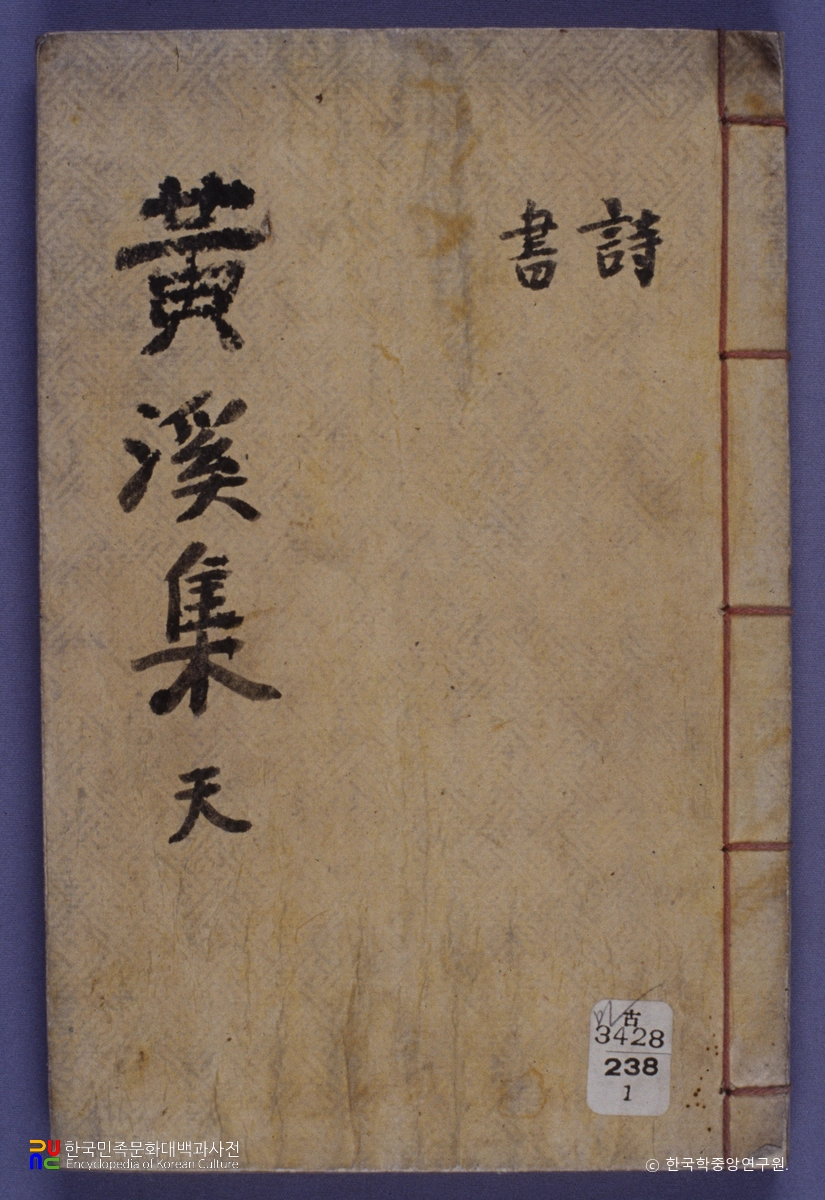 詩
書
黃溪集 天
古
3428
238
1
한국민족문화대백과사전
Encyclopedia of Korean Culture
© 한국학중앙연구원.